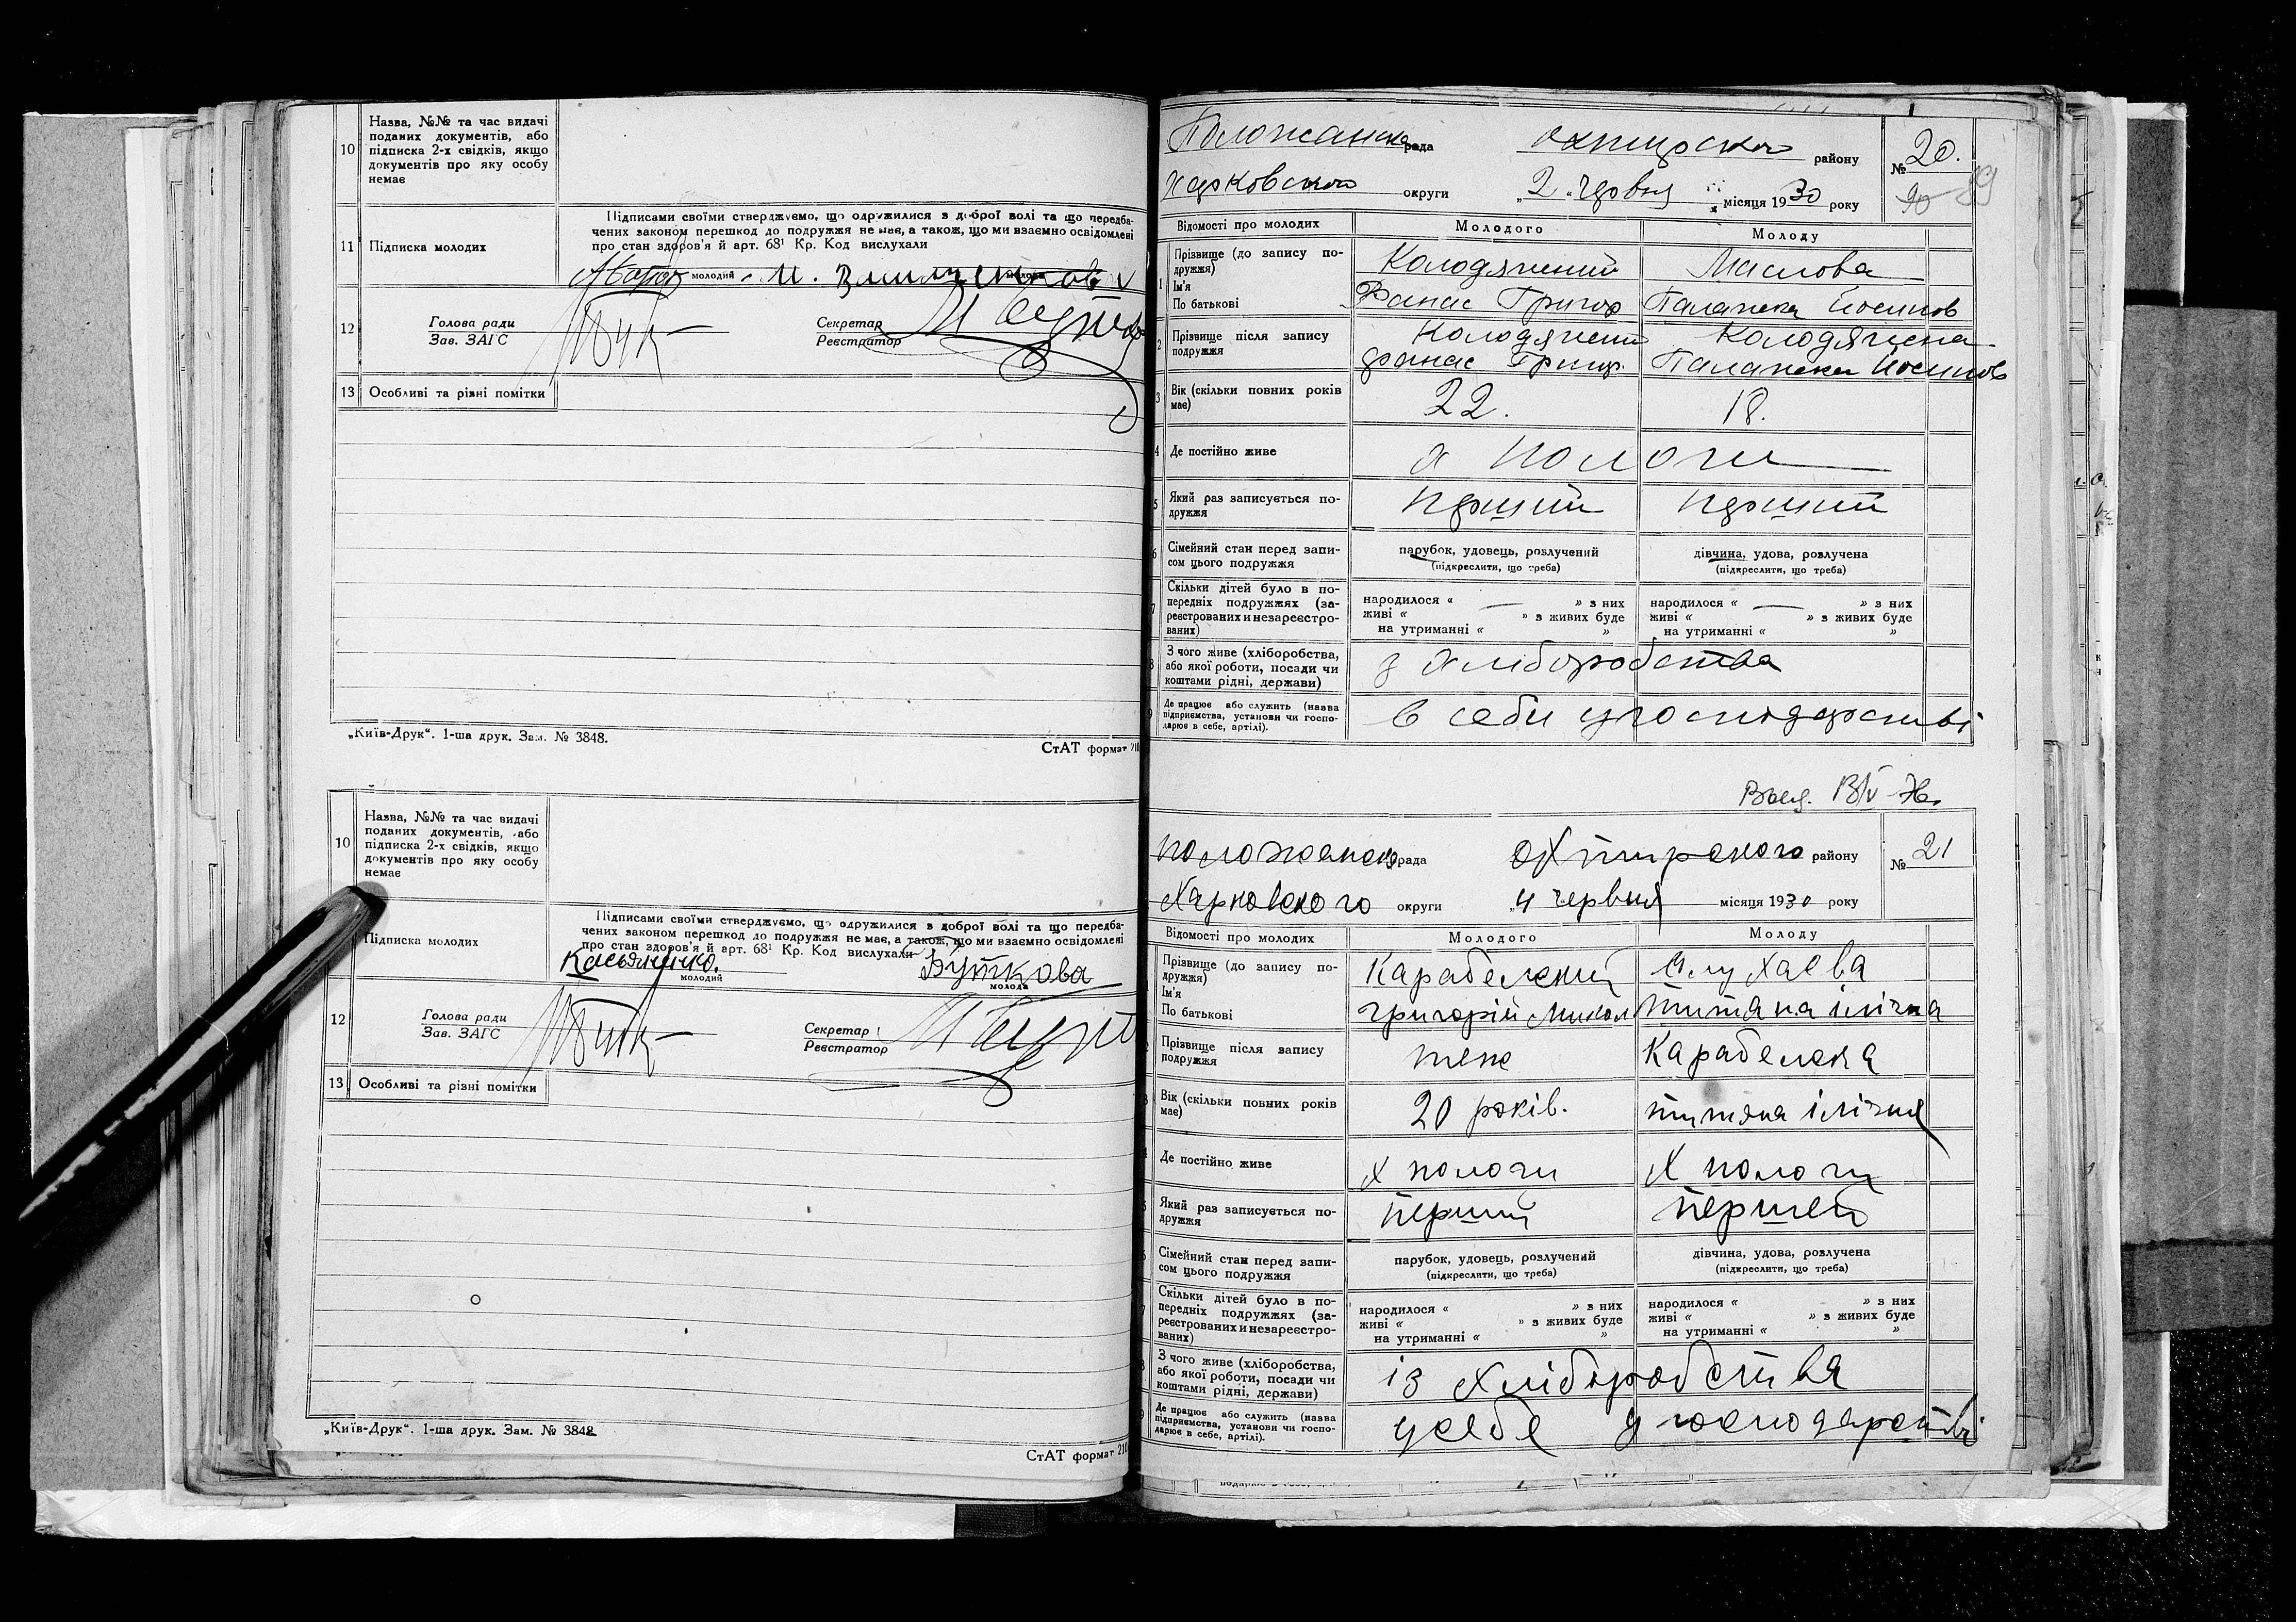 10
Назва, №№ та час видачі
поданих документів, або
підписка 2-х свідків, якщо
документів про яку особу
немає
11
Підписка молодих
Підписами своїми стверджуємо, що одружилися з доброї волі та що передба-
чених законом перешкод до подружжя не має, а також, що ми взаємно освідомлені
про стан здоров'я й арт. 68¹ Кр. Код вислухали
молодий
молода
12
Голова ради
Зав. ЗАГС
Секретар
Реєстратор
13
Особливі та різні помітки
„Київ-Друк“. 1-ша друк. Зам. № 3848.
СтАТ формат 210
10
Назва, №№ та час видачі
поданих документів, або
підписка 2-х свідків, якщо
документів про яку особу
немає
Підписка молодих
Підписами своїми стверджуємо, що одружилися з доброї волі та що передба-
чених законом перешкод до подружжя не має, а також, що ми взаємно освідомлені
про стан здоров'я й арт. 68¹ Кр. Код вислухали
Касьяненко. Буткова
молодий
молода
12
Голова ради
Зав. ЗАГС
Секретар
Реєстратор
13
Особливі та різні помітки
„Київ-Друк“. 1-ша друк. Зам. № 3848
СтАТ формат 210
Положанська рада Охтирсько району № 20.
Харковсько округи „2„ червня місяця 1930 року
89
Відомості про молодих Молодого Молоду
1 Прізвище (до запису по-
дружжя)
Ім'я
По батькові
Колодяжний Маслова
Фанас Григор Палажка Йосипов
2 Прізвище після запису
подружжя
Колодяжний Колодяжна
Фанас Григор. Палажка Йосипов
3 Вік (скільки повних років
має)
22. 18.
4 Де постійно живе х Пологи
5 Який раз записується по-
дружжя
перший перший
6 Сімейний стан перед запи-
сом цього подружжя
парубок, удовець, розлучений
(підкреслити, що треба)
дівчина, удова, розлучена
(підкреслити, що треба)
7 Скільки дітей було в по-
передніх подружжях (за-
реєстрованих и незареєстро-
ваних)
народилося « — » з них
живі « » з живих буде
на утриманні « »
народилося « — » з них
живі « » з живих буде
на утриманні « »
8 З чого живе (хліборобства,
або якої роботи, посади чи
коштами рідні, держави)
з хліборобства
9 Де працює або служить (назва
підприємства, установи чи госпо-
дарює в себе, артілі).
в себи у господарстві
положанська рада охтирского району № 21
Харковского округи „4 червня місяця 1930 року
Відомості про молодих Молодого Молоду
Прізвище (до запису по-
дружжя)
Ім'я
По батькові
Карабельний
григорій Микол титяна ілічна
Прізвище після запису
подружжя
теж Карабелна
Вік (скільки повних років
має)
20 років. титяна ілічня
Де постійно живе х пологи х пологи
Який раз записується по-
дружжя
перший першей
Сімейний стан перед запи-
сом цього подружжя
парубок, удовець, розлучений
(підкреслити, що треба)
дівчина, удова, розлучена
(підкреслити, що треба)
Скільки дітей було в по-
передніх подружжях (за-
реєстрованих и незареєстро-
ваних)
народилося « » з них
живі « » з живих буде
на утриманні « »
народилося « » з них
живі « » з живих буде
на утриманні « »
З чого живе (хліборобства,
або якої роботи, посади чи
коштами рідні, держави)
із хліборобства
Де працює або служить (назва
підприємства, установи чи госпо-
дарює в себе, артілі).
у себе у господарстві